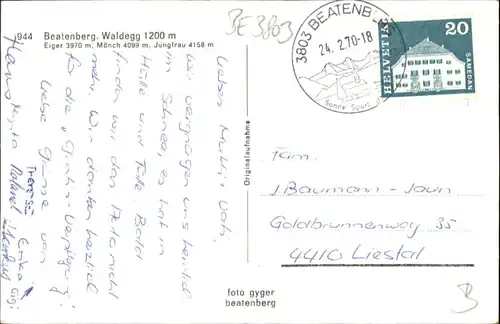 944 Beatenberg. Waldegg 1200 m
Eiger 3970 m, Mönch 4099 m, Jungfrau 4158 m
BE 3803
3803 BEATENB
24. 2.70-18
Sonne Sport
HELVETIA
20
SAMEDAN
Originalaufnahme
Liebes Vati,
wir vergnügen uns herrlich
im Schnee, es hat in
Hülle und Fülle. Bald
finden wir das Adelnicht
mehr. Wir danken herzlich
für die „
Liebe Grüsse von
Erika
Therese
Gigi
Fam.
J. Baumann-
Goldbrunnenweg 35
4410 Liestal
foto gyger
beatenberg
B